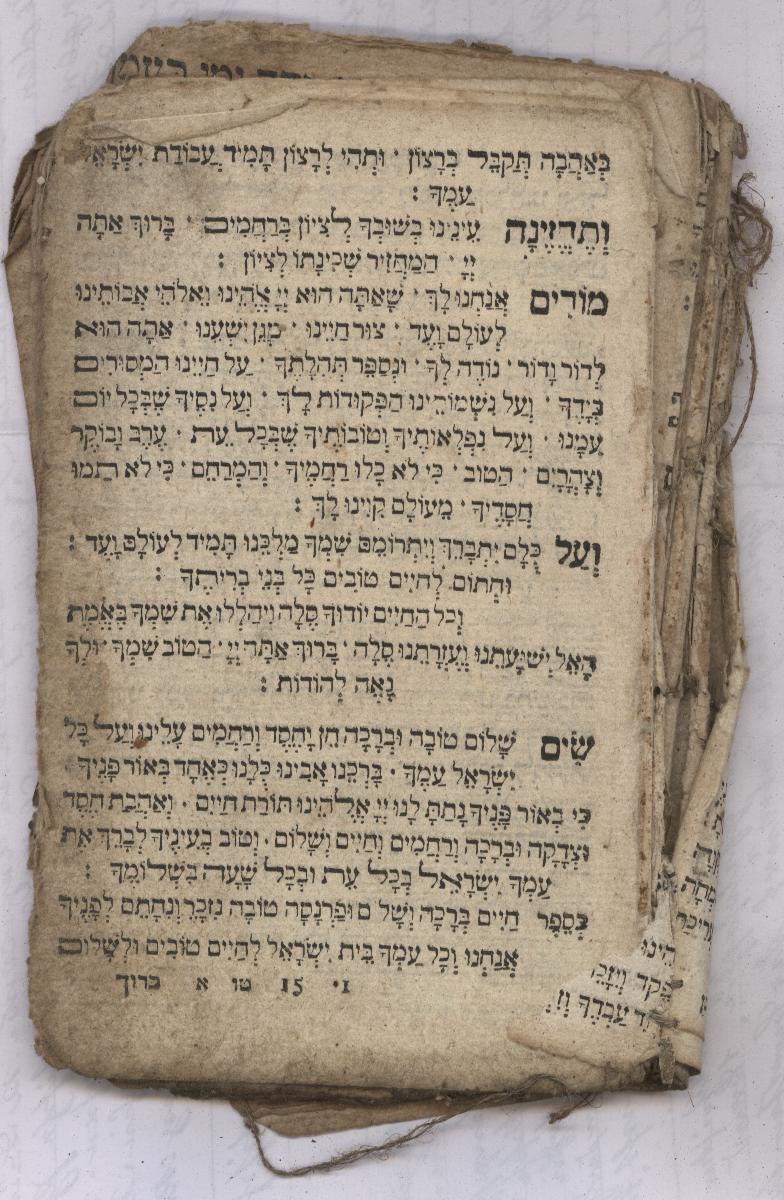 בְּאַהֲבָה תְקַבֵּל בְּרָצוֹן · וּתְהִי לְרָצוֹן תָּמִיד עֲבוֹדַת יִשְׂרָאֵל
עַמֶּךָ :
וְתֶחֱזֶינָה עֵינֵינוּ בְּשׁוּבְךָ לְצִיּוֹן בְּרַחֲמִים · בָּרוּךְ אַתָּה
יְיָ · הַמַּחֲזִיר שְׁכִינָתוֹ לְצִיּוֹן :
מוֹדִים אֲנַחְנוּ לָךְ · שָׁאַתָּה הוּא יְיָ אֱלֹהֵינוּ וֵאלֹהֵי אֲבוֹתֵינוּ
לְעוֹלָם וָעֶד · צוּר חַיֵּינוּ · מָגֵן יִשְׁעֵנוּ · אַתָּה הוּא
לְדוֹר וָדוֹר · נוֹדֶה לְּךָ · וּנְסַפֵּר תְּהִלָּתֶךָ · עַל חַיֵּינוּ הַמְּסוּרִים
בְּיָדֶךָ · וְעַל נִשְׁמוֹתֵינוּ הַפְּקוּדוֹת לָךְ · וְעַל נִסֶּיךָ שֶׁבְּכָל יוֹם
עִמָּנוּ · וְעַל נִפְלְאוֹתֶיךָ וְטוֹבוֹתֶיךָ שֶׁבְּכָל עֵת · עֶרֶב וָבוֹקֶר
וְצָהֳרָיִם · הַטּוֹב · כִּי לֹא כָלוּ רַחֲמֶיךָ · וְהַמְרַחֵם · כִּי לֹא תַמּוּ
חֲסָדֶיךָ · מֵעוֹלָם קִוִּינוּ לָךְ :
וְעַל כֻּלָּם יִתְבָּרֵךְ וְיִתְרוֹמֵם שִׁמְךָ מַלְכֵּנוּ תָּמִיד לְעוֹלָם וָעֶד :
וּחֲתוֹם לְחַיִּים טוֹבִים כָּל בְּנֵי בְרִיתֶךָ :
וְכֹל הַחַיִּים יוֹדוּךָ סֶּלָה וִיהַלְלוּ אֶת שִׁמְךָ בֶּאֱמֶת
הָאֵל יְשׁוּעָתֵנוּ וְעֶזְרָתֵנוּ סֶלָה · בָּרוּךְ אַתָּה יְיָ · הַטּוֹב שִׁמְךָ · וּלְךָ
נָאֶה לְהוֹדוֹת :
שִׂים שָׁלוֹם טוֹבָה וּבְרָכָה חֵן וָחֶסֶד וְרַחֲמִים עָלֵינוּ וְעַל כָּל
יִשְׂרָאֵל עַמֶּךָ · בָּרְכֵנוּ אָבִינוּ כֻּלָּנוּ כְּאֶחָד בְּאוֹר פָּנֶיךָ
כִּי בְאוֹר פָּנֶיךָ נָתַתָּ לָנוּ יְיָ אֱלֹהֵינוּ תּוֹרַת חַיִּים · וְאַהֲבַת חֶסֶד
וּצְדָקָה וּבְרָכָה וְרַחֲמִים וְחַיִּים וְשָׁלוֹם · וְטוֹב בְּעֵינֶיךָ לְבָרֵךְ אֶת
עַמְּךָ יִשְׂרָאֵל בְּכָל עֵת וּבְכָל שָׁעָה בִּשְׁלוֹמֶךָ :
בְּסֵפֶר חַיִּים בְּרָכָה וְשָׁלוֹם וּפַרְנָסָה טוֹבָה נִזָּכֵר וְנֵחָתֵם לְפָנֶיךָ
אֲנַחְנוּ וְכָל עַמְּךָ בֵּית יִשְׂרָאֵל לְחַיִּים טוֹבִים וּלְשָׁלוֹם
י׳ 15 טו א ברוך
הֵינוּ
עַבְדֶּךָ